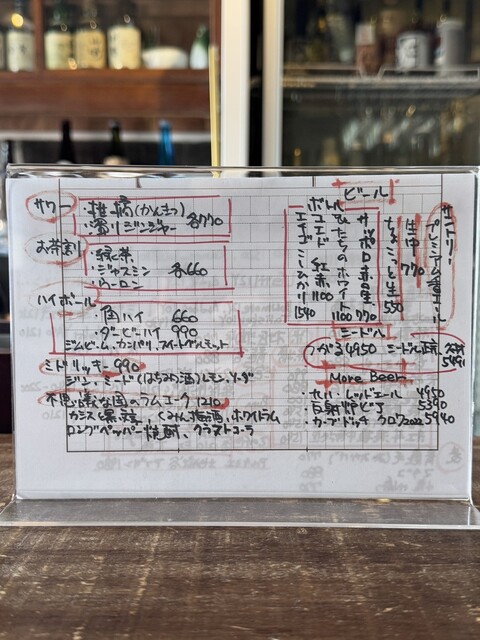 サワー
・柑橘(かんきつ)
・濃いジンジャー 各770
お茶割り
・緑茶
・ジャスミン 各660
・ウーロン
ハイボール
・角ハイ 660
・ダービハイ 990
ジムビーム、カンパリ、スイートベルモット
ミドリッキー 990
ジン、ミード(はちみつ酒)レモン、ソーダ
不思議な国のラムコーク 1210
カシス、黒糖、くろみん梅酒、ホワイトラム
ロングペッパー焼酎、クラフトコーラ
ビール
サントリー
プレミアム香エール
生中 770
ちょこっと生 550
サッポロ赤星 770
ひたちのホワイト 1100
コエド 紅赤 1100
エチゴ こしひかり 1540
ボトル
ミードハニー
4950
5491
More Beer
・セゾン・レッドエール 4950
・反射炉ビヤ 5390
・カーブドッチ クロワ2022 5940